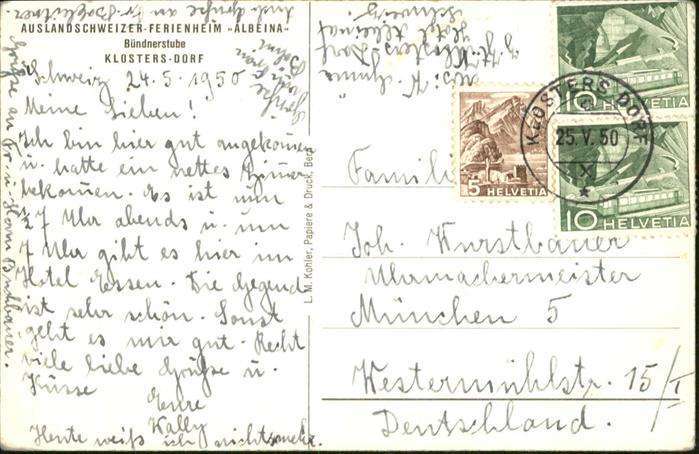 AUSLANDSCHWEIZER-FERIENHEIM „ALBEINA"
Bündnerstube
KLOSTERS-DORF
Schweiz 24.5.1950
Meine Lieben!
Ich bin hier gut angekommen
u. hatte ein nettes Zimmer
bekommen. Es ist nun
7 Uhr abends u. um
7 Uhr gibt es hier im
Hotel Essen. Die Gegend
ist sehr schön. Sonst
geht es mir gut. Recht
viele liebe Grüsse u.
Küsse
Eure
Wally
Heute weiß ich nichts mehr.
Grüsse an Fr. u. Herrn
Auch Grüsse an Fr.
Hotel Albeina
Klosters Dorf
Schweiz.
L. M. Kohler, Papiere & Druck, Bern
5 HELVETIA
10 HELVETIA
10 HELVETIA
KLOSTERS DORF
25.V.50
X
Familie
Joh. Wurstbauer
Uhrmachermeister
München 5
Westermühlstr. 15/I
Deutschland.